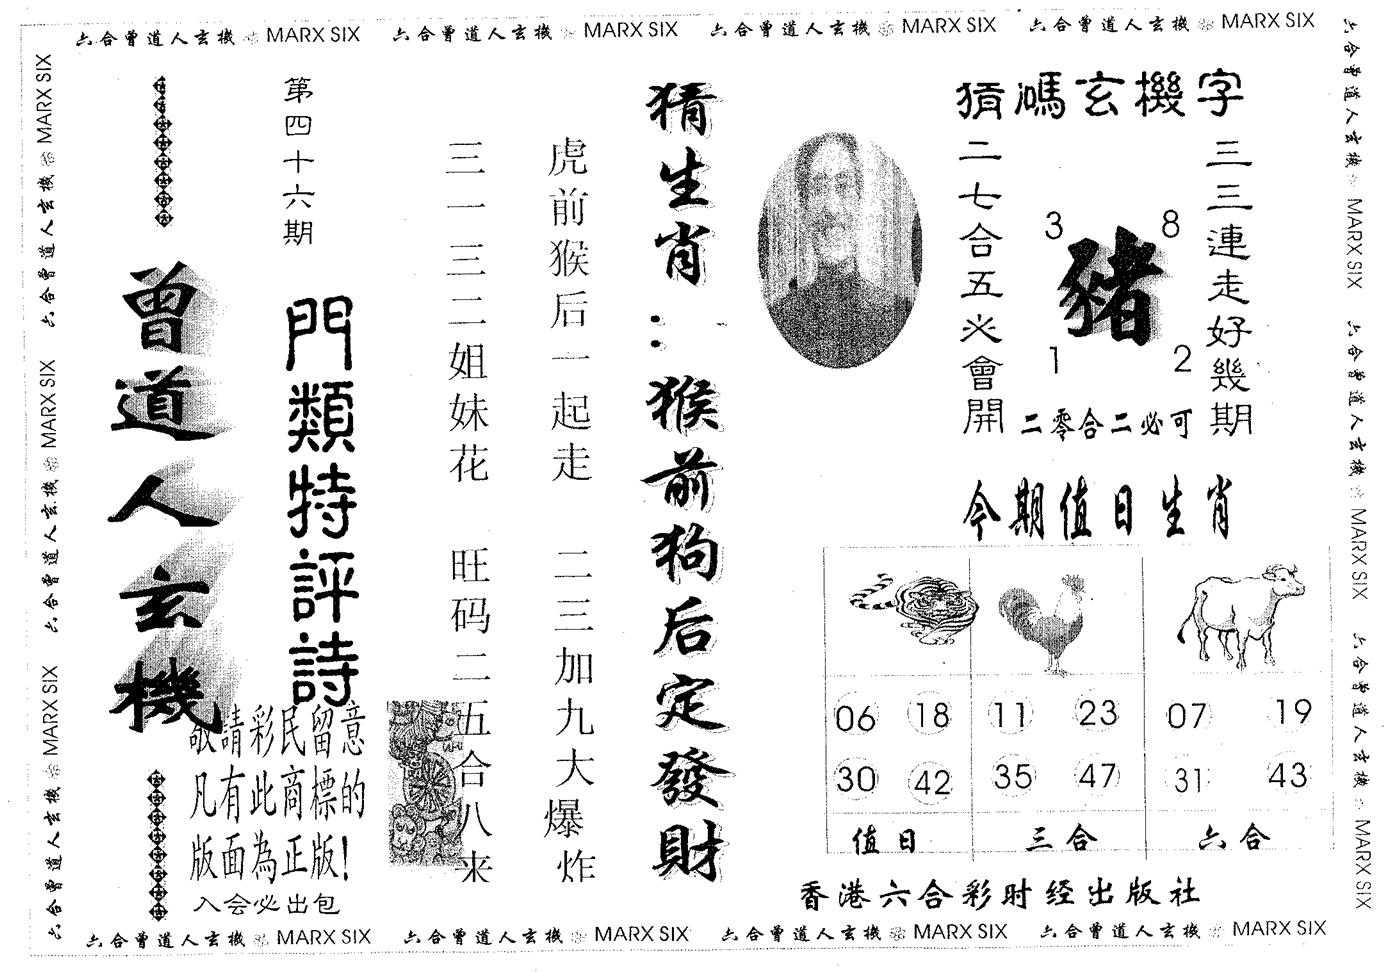 六合曾道人玄機 MARX SIX 六合曾道人玄機 MARX SIX 六合曾道人玄機 MARX SIX 六合曾道人玄機 MARX SIX
六合曾道人玄機 MARX SIX 六合曾道人玄機 MARX SIX 六合曾道人玄機 MARX SIX
曾道人玄機
第四十六期
門類特評詩
敬請彩民留意
凡有此商標的
版面為正版!
入会必出包
三一三二姐妹花 旺码二五合八来
虎前猴后一起走 二三加九大爆炸
猜生肖:猴前狗后定發財
猜碼玄機字
二七合五必會開
3 8
豬
1 2
二零合二必可
三三連走好幾期
今期值日生肖
06 18 11 23 07 19
30 42 35 47 31 43
值日 三合 六合
香港六合彩时经出版社
六合曾道人玄機 MARX SIX 六合曾道人玄機 MARX SIX 六合曾道人玄機 MARX SIX
六合曾道人玄機 MARX SIX 六合曾道人玄機 MARX SIX 六合曾道人玄機 MARX SIX 六合曾道人玄機 MARX SIX